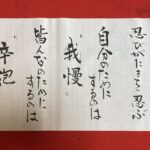 忍びがたきを忍ぶ
自分のために
するのは
"我慢"
皆んなのために
するのは
"辛抱